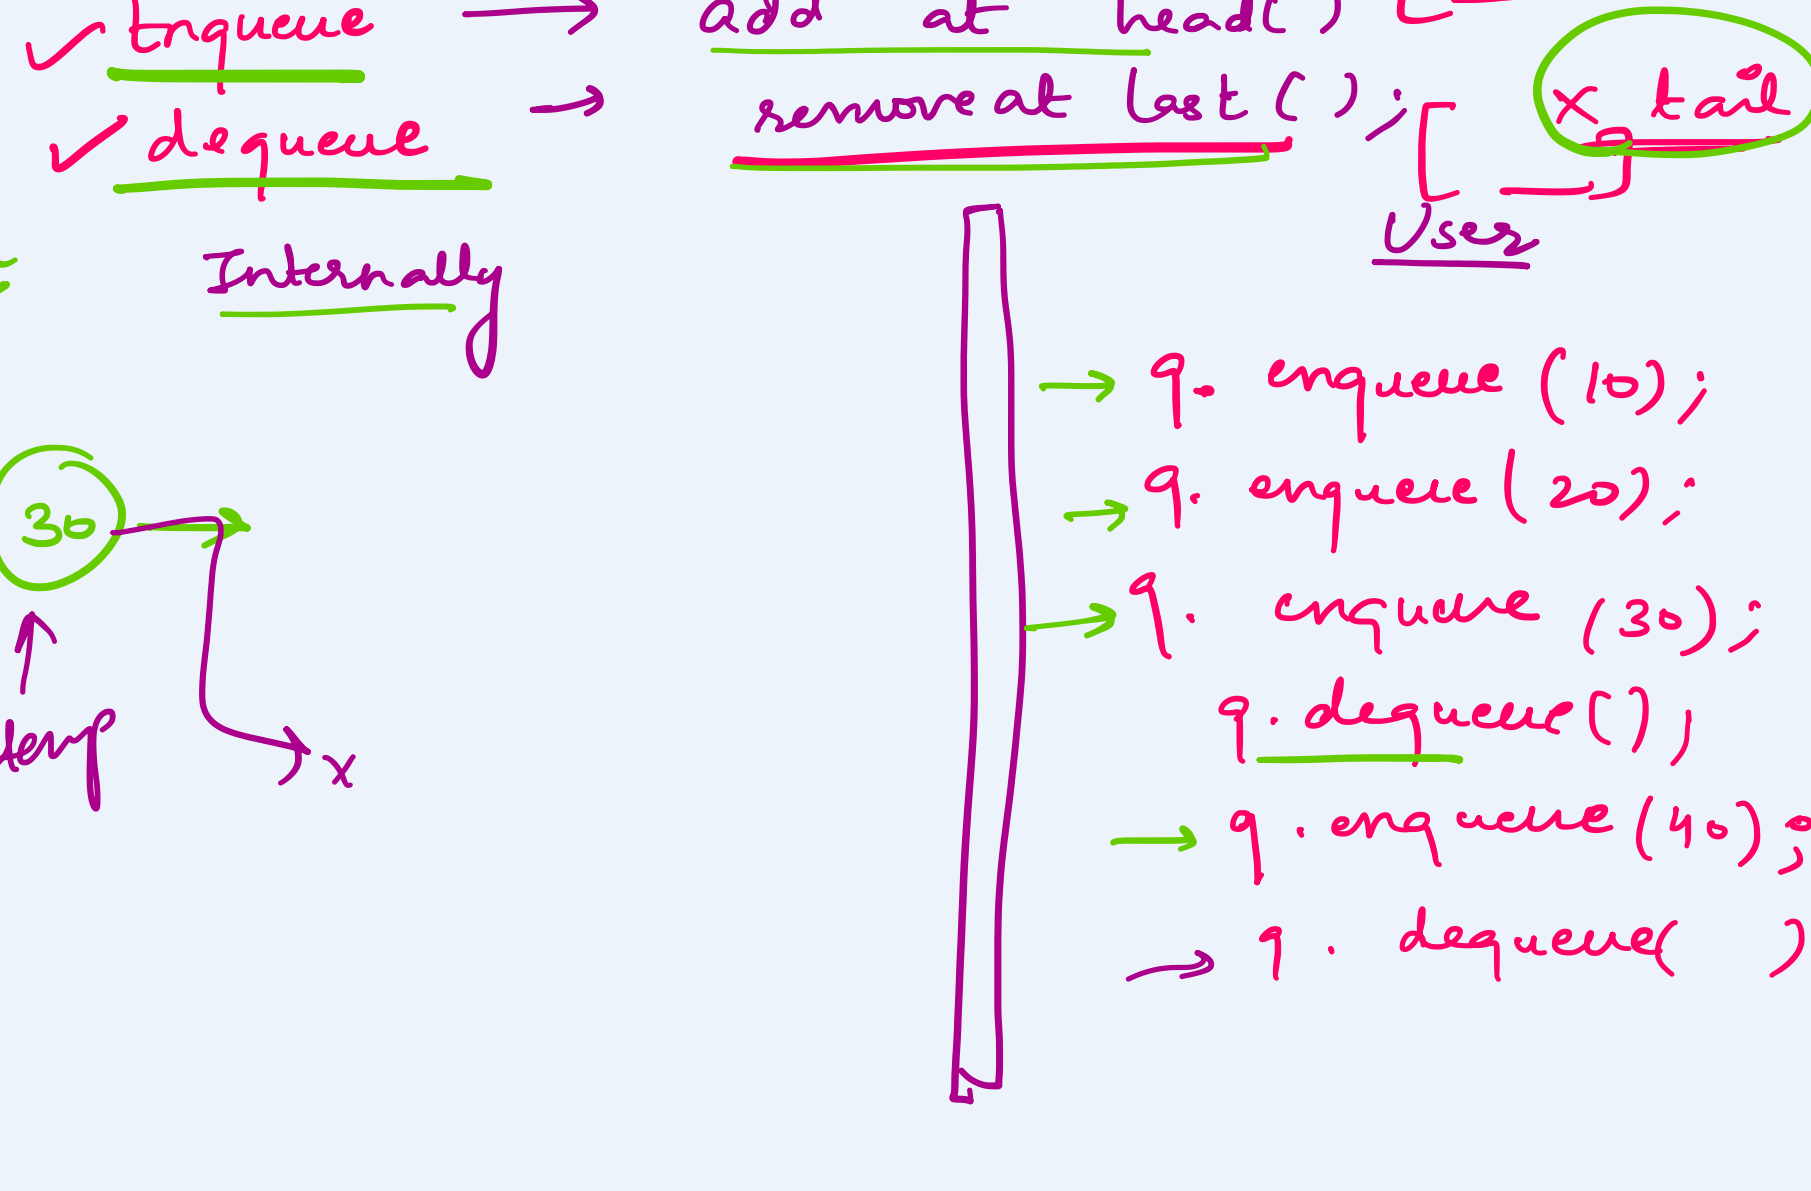 Enqueue → add at head()
dequeue → remove at last(); [ x tail ]
Internally
User
q. enqueue (10);
q. enqueue (20);
30
q. enqueue (30);
q. dequeue();
temp
x
q. enqueue (40);
q. dequeue( )